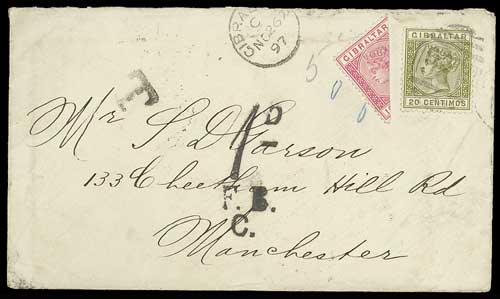 GIBRALTAR
C
NO 26
97
GIBRALTAR
GIBRALTAR
20 CENTIMOS
5 0 0
T
1D
Mr S D Garson
133 Cheetham Hill Rd
F. B.
C.
Manchester